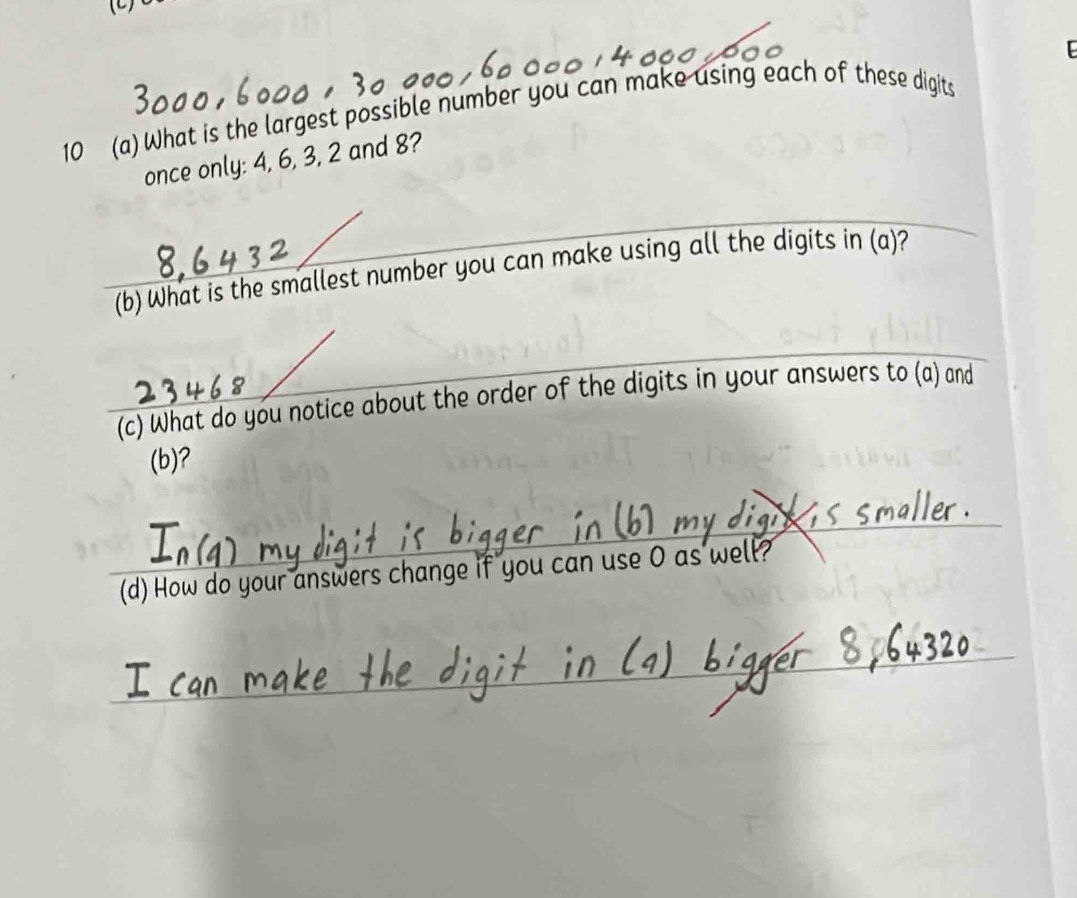 (c)
3000, 6000, 30 000, 60 000, 4 000, 000
E
10 (a) What is the largest possible number you can make using each of these digits
once only: 4, 6, 3, 2 and 8?
8,6432
(b) What is the smallest number you can make using all the digits in (a)?
23468
(c) What do you notice about the order of the digits in your answers to (a) and
(b)?
In (a) my digit is bigger in (b) my digit is smaller.
(d) How do your answers change if you can use 0 as well?
I can make the digit in (a) bigger 8,64320